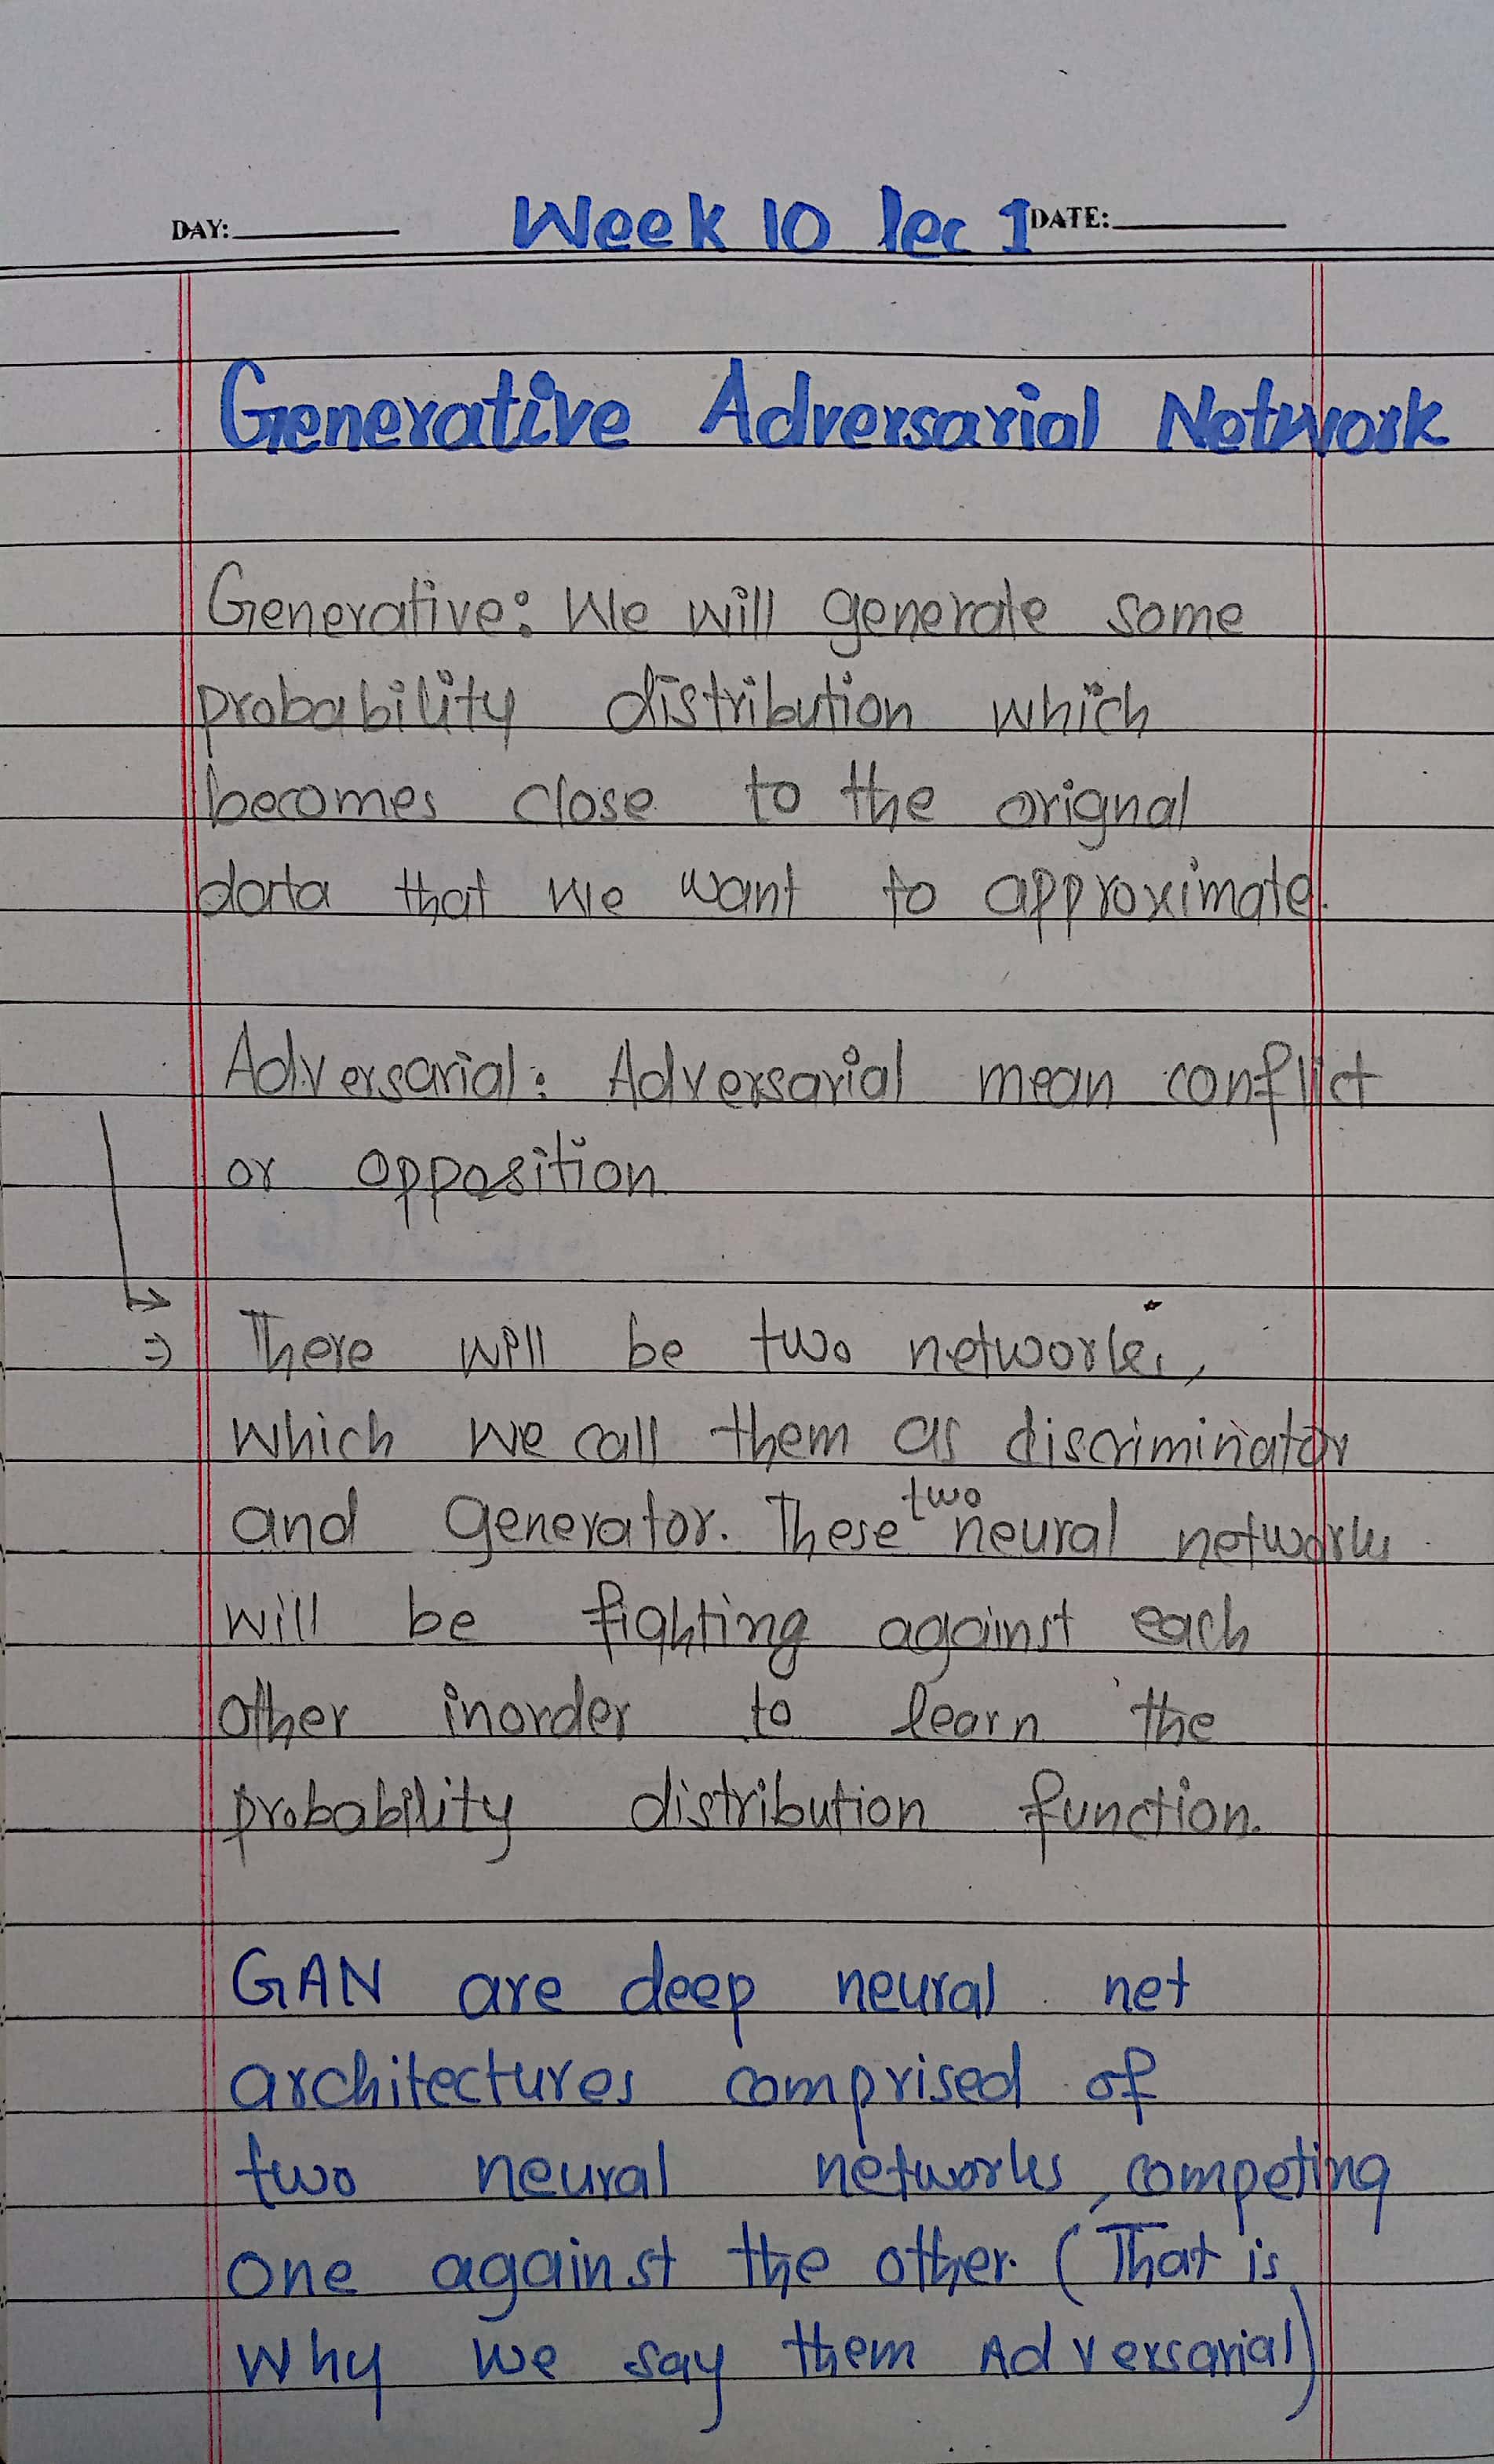 DAY: Week 10 lec 1 DATE:
Generative Adversarial Network
Generative: We will generate some
probability distribution which
becomes close to the orignal
data that we want to approximate.
Adversarial: Adversarial mean conflict
or opposition
⇒ There will be two networks,
which we call them as discriminator
and generator. These two neural networks
will be fighting against each
other inorder to learn the
probability distribution function.
GAN are deep neural net
architectures comprised of
two neural networks, competing
one against the other. (That is
why we say them Adversarial)